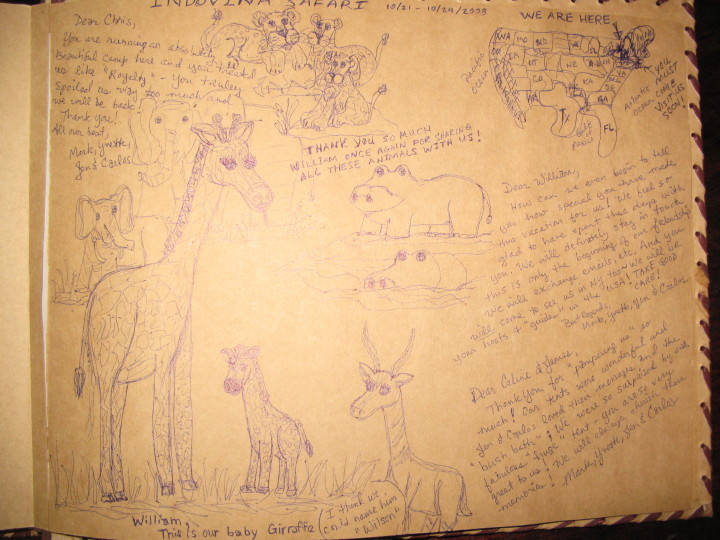 INDOVINA SAFARI 10/21 - 10/29/2008
Dear Chris,
You are running an absolutely
Beautiful camp here and you treated
us like "Royalty" - you truley
spoiled us way too much and
we will be back!
Thank you!
All our best,
Mark, Yvette,
Jen & Carlos
THANK YOU SO MUCH
WILLIAM ONCE AGAIN FOR SHARING
ALL THESE ANIMALS WITH US!
WE ARE HERE
pacific
ocean
WA
TX
FL
GA
gulf
Atlantic
ocean
YOU
MUST
COME
VISIT US
SOON!
Dear William,
How can we even begin to tell
you how special you have made
this vacation for us! We feel so
glad to have spent these days with
you. We will definitely stay in touch
this is only the beginning of our friendship
We will exchange emails, etc. And you
will come to see us in NY too - We will be
your hosts & "guides" in the USA! TAKE GOOD
CARE!
Best Regards,
Mark, Yvette, Jen & Carlos
Dear Celine & James,
Thank you for "pampering us" so
much! Our tents were wonderful and
Jen & Carlos loved their massages and the
"bush bath"! We were so surprised by our
fabulous tent - you are so very
great to us! We will always cherish these
memories! Mark, Yvette, Jen & Carlos
William,
This is our baby Girraffe
(I think we
could name him
"Wilson")